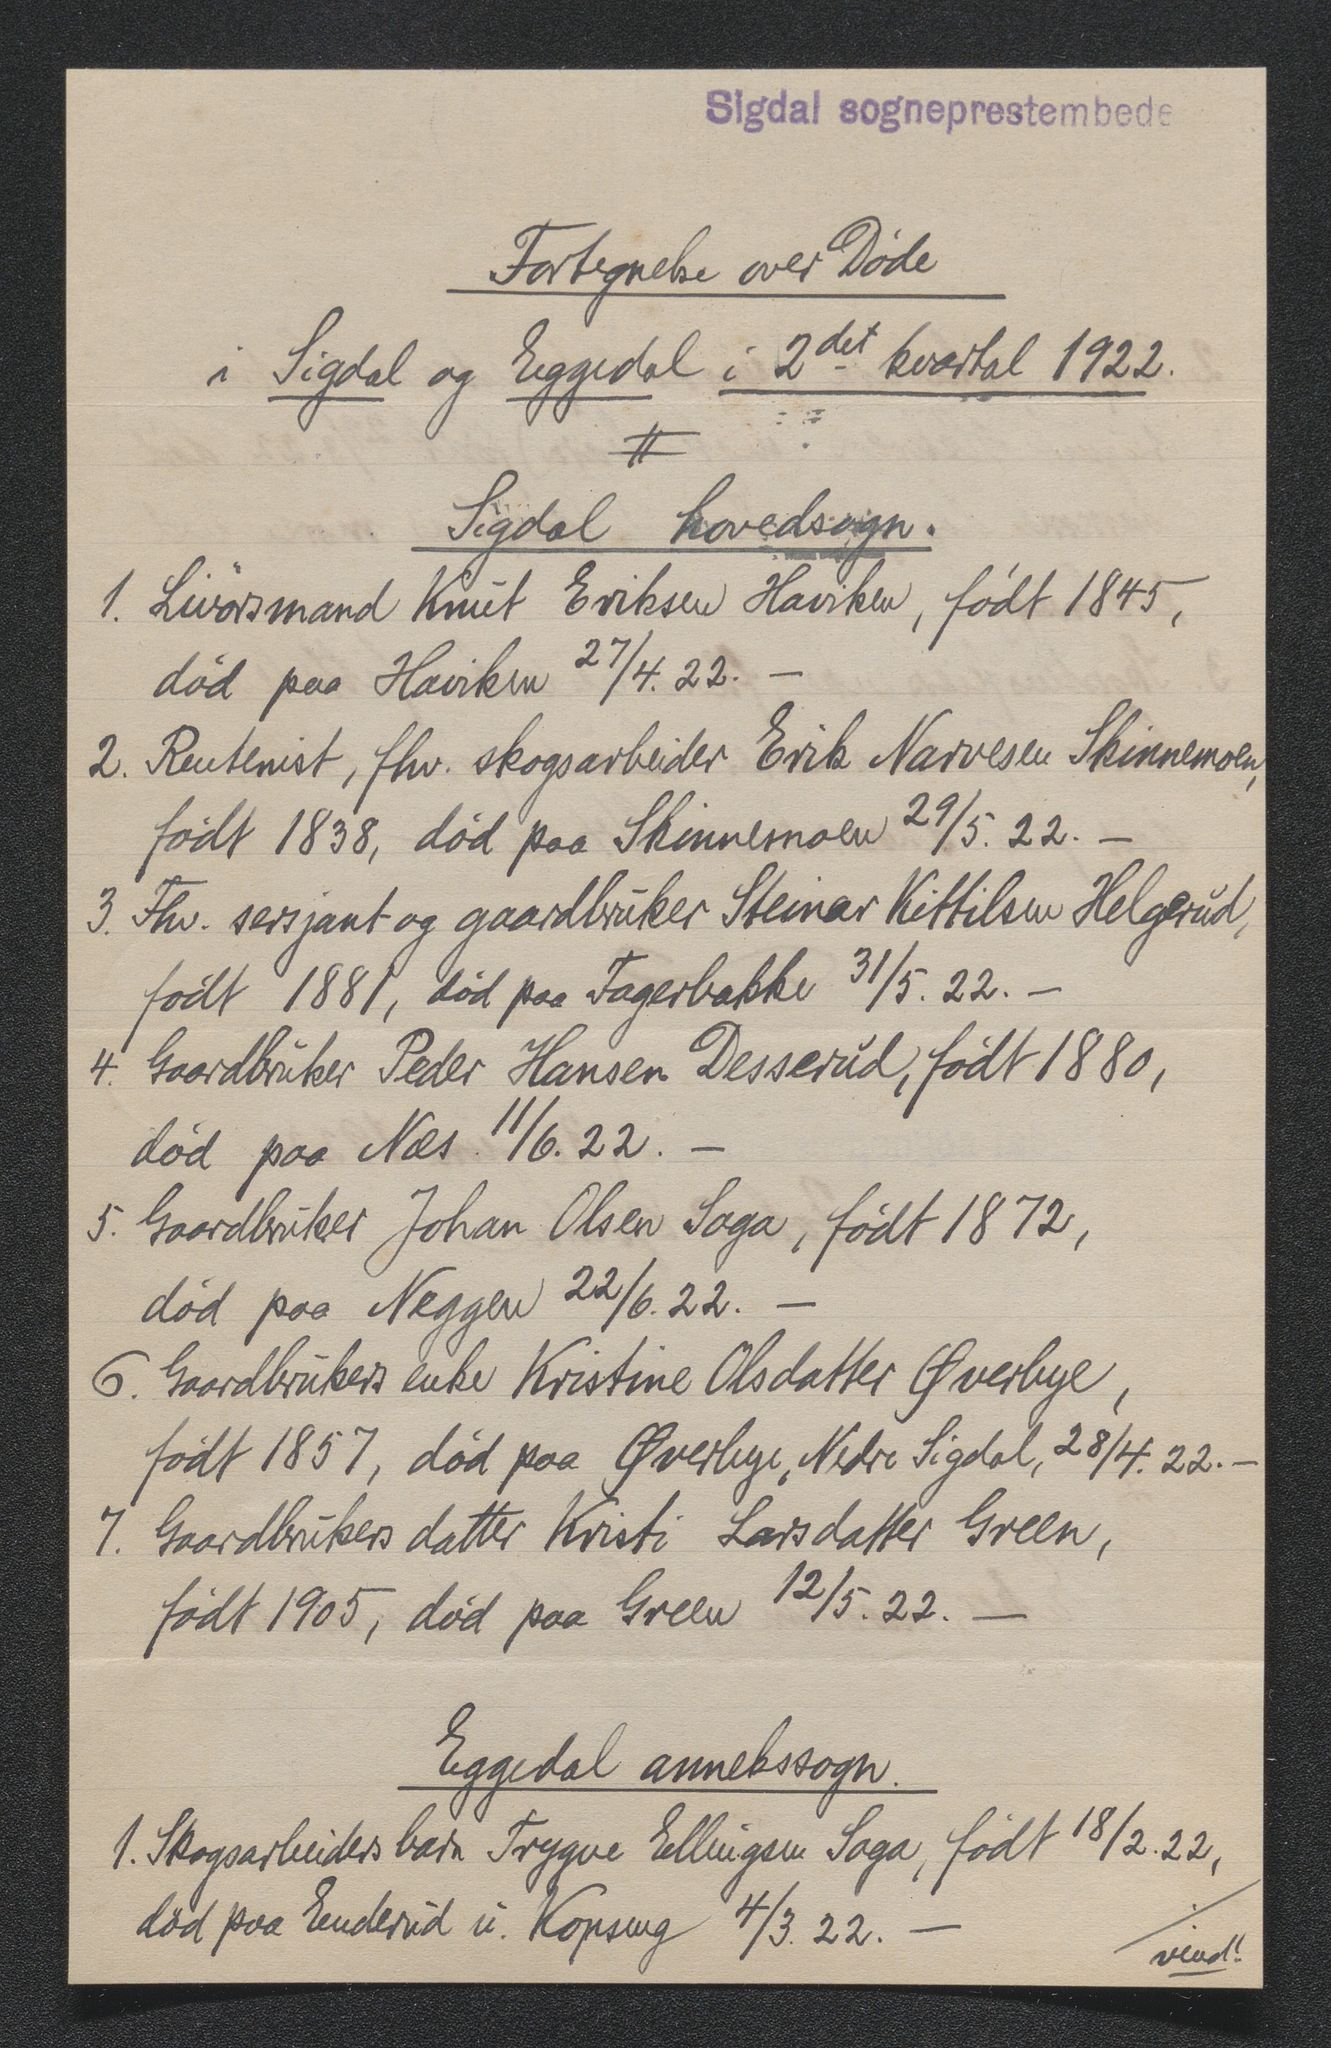 Sigdal sogneprestembede
Fortegnelse over Døde
i Sigdal og Eggedal i 2det kvartal 1922.
Sigdal hovedsogn.
1. Livörsmand Knut Eriksen Haviken, födt 1845,
död paa Haviken 27/4. 22. —
2. Rentenist, fhv. skogsarbeider Erik Narvesen Skinnemoen,
födt 1838, död paa Skinnemoen 29/5. 22. —
3. Fhv. sersjant og gaardbruker Steinar Kittilsen Helgerud,
födt 1881, död paa Fagerbakke 31/5. 22. —
4. Gaardbruker Peder Hansen Desserud, födt 1880,
död paa Næs 11/6. 22. —
5. Gaardbruker Johan Olsen Saga, födt 1872,
död paa Neggen 22/6. 22. —
6. Gaardbrukers enke Kristine Olsdatter Øverbye,
födt 1857, död paa Øverbye, Nedre Sigdal, 28/4. 22. —
7. Gaardbrukers datter Kristi Larsdatter Green,
födt 1905, död paa Green 12/5. 22. —
Eggedal annekssogn.
1. Skogsarbeiders barn Trygve Ellingsen Saga, födt 18/2. 22,
död paa Enderud u. Kopseng 4/3. 22. —
vend!